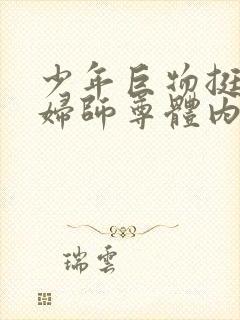 少年巨物挺
婦師尊體內
瑞雲